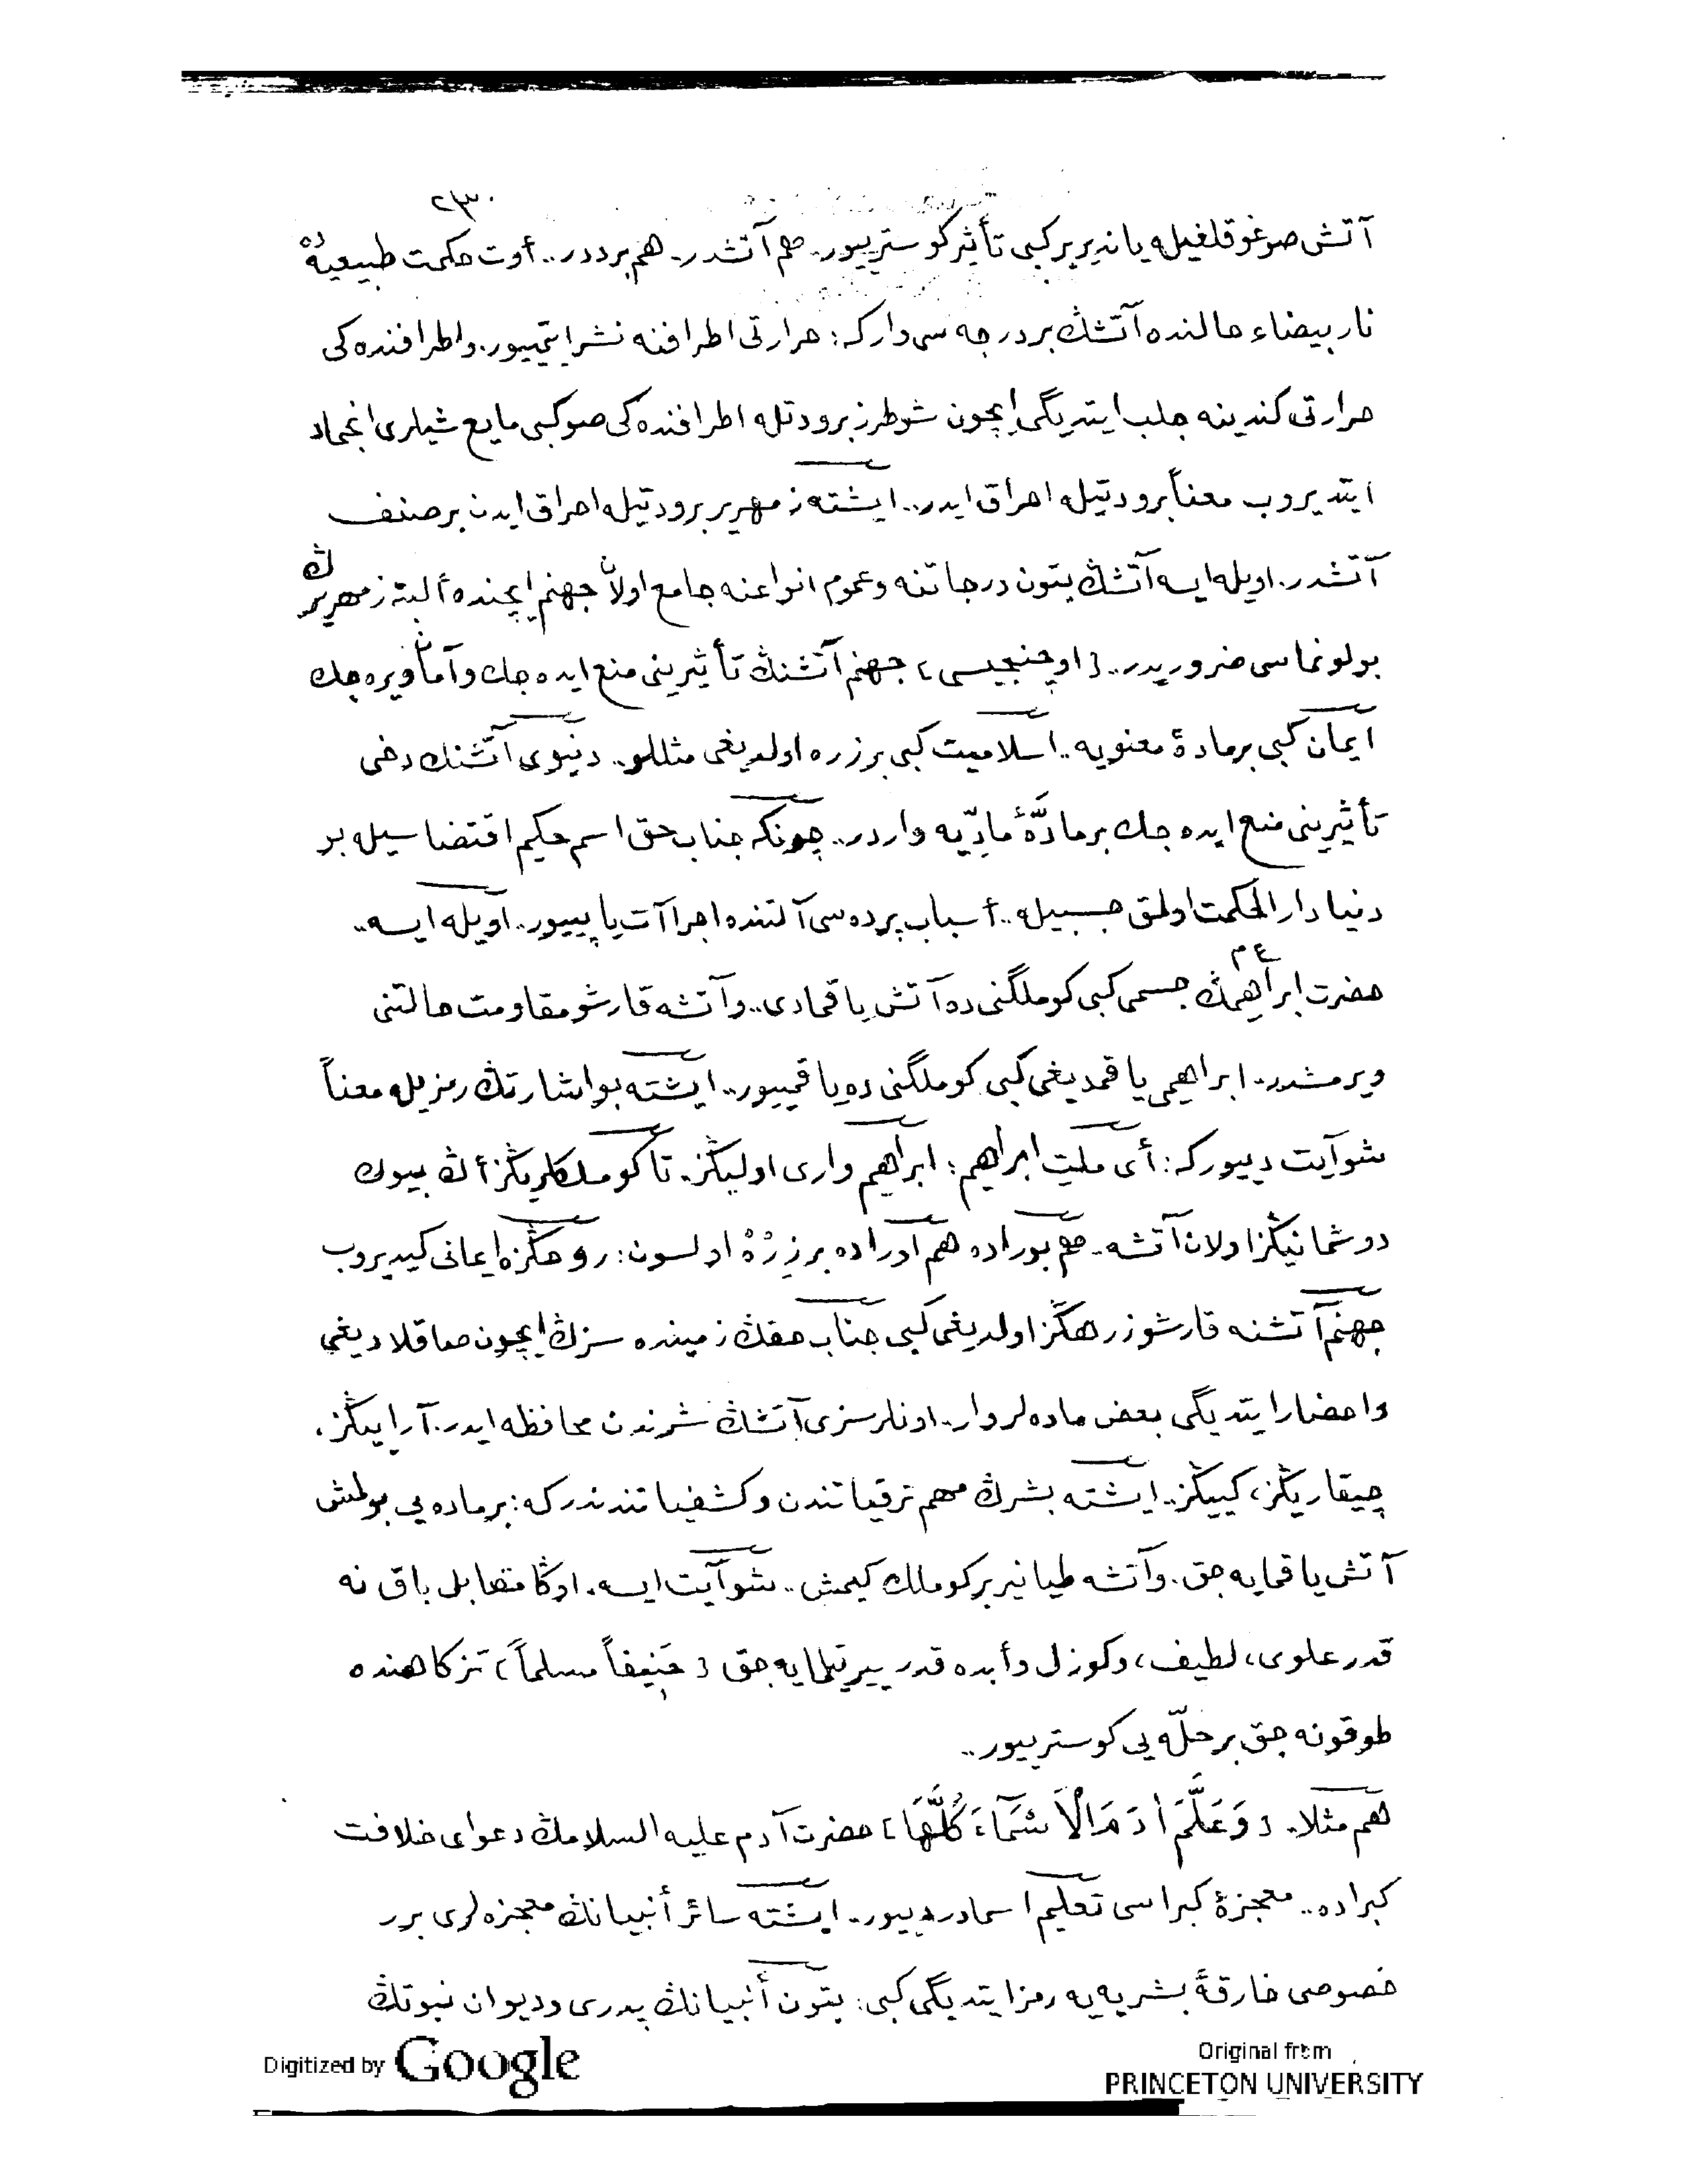 ٢٣٠
آتش صوغوقلغیله یاندیریر کبی تأثیر کوستریيور. هم آتشدر. هم برددر.. أوت حکمت طبیعیه‌ده
نار بیضاء حالنده آتشڭ بر درجه سی وارکه: حرارتی اطرافنه نشر ایتمییور. واطرافنده کی
حرارتی کندینه جلب ایتدیگی ایچون شو طرز برودتله اطرافنده کی صو کبی مایع شیلری انجماد
ایتدیروب معناً برودتیله احراق ایدر.. ایشته زمهریر برودتیله احراق ایدن بر صنف
آتشدر. اویله ایسه آتشڭ بتون درجاتنه وعموم انواعنه جامع اولان جهنم ایچنده ألبته زمهریرڭ
بولونماسی ضروریدر.. [اوچنجیسی] جهنم آتشنڭ تأثیرینی منع ایده جك وآمان ویره جك
ایمان کبی بر مادۀ معنویه.. اسلامیت کبی بر زره اولدیغی مثللو.. دنیوی آتشنڭ دخی
تأثیرینی منع ایده جك بر مادّۀ مادّیه واردر.. چونکه جناب حق اسم حکیم اقتضاسیله بو
دنیا دار الحکمت اولمق حسبیله.. أسباب پرده سی آلتنده اجراآت یاپییور.. اویله ایسه..
حضرت ابراهیمڭ ع م جسمی کبی کوملگنی ده آتش یاقمادی.. وآتشه قارشو مقاومت حالتنی
ویرمشدر. ابراهیمی یاقمدیغی کبی کوملگنی ده یاقمییور.. ایشته بو اشارتڭ رمزیله معناً
شو آیت دییورکه: أی ملت ابراهیم: ابراهیم واری اولیڭز. تا کوملکلریڭز أڭ بیوك
دوشمانیڭز اولان آتشه. هم بوراده هم اوراده بر زِرْهْ اولسون: روحڭزه ایمانی کیدیروب
جهنم آتشنه قارشو زرهڭز اولدیغی کبی جناب حقڭ زمینده سزڭ ایچون صاقلادیغی
واحضار ایتدیگی بعض ماده لر وار. اونلر سزی آتشڭ شرندن محافظه ایدر. آراییڭز.
چیقاریڭز، کییڭز.. ایشته بشرڭ مهم ترقیاتندن وکشفیاتندندرکه: بر ماده یی بولمش
آتش یاقمایه جق. وآتشه طیانیر بر کوملك کیمش.. شو آیت ایسه. اوڭا مقابل باق نه
قدر علوی، لطیف، وکوزل وأبده قدر ییرتلمایه جق [حَنِیفاً مسلماً] تزکاهنده
طوقونه جق بر حلّه یی کوستریيور..
هم مثلا. [وَعَلَّمَ اٰدَمَ الْاَسْمَٓاءَ كُلَّهَا] حضرت آدم علیه السلامڭ دعوای خلافت
کبراده.. معجزۀ کبراسی تعلیم اسمادر دییور. ایشته سائر أنبیانڭ معجزه لری برر
خصوصی خارقۀ بشریه یه رمز ایتدیگی کبی: بتون أنبیانڭ پدری ودیوان نبوتڭ
Digitized by Google
Original from
PRINCETON UNIVERSITY